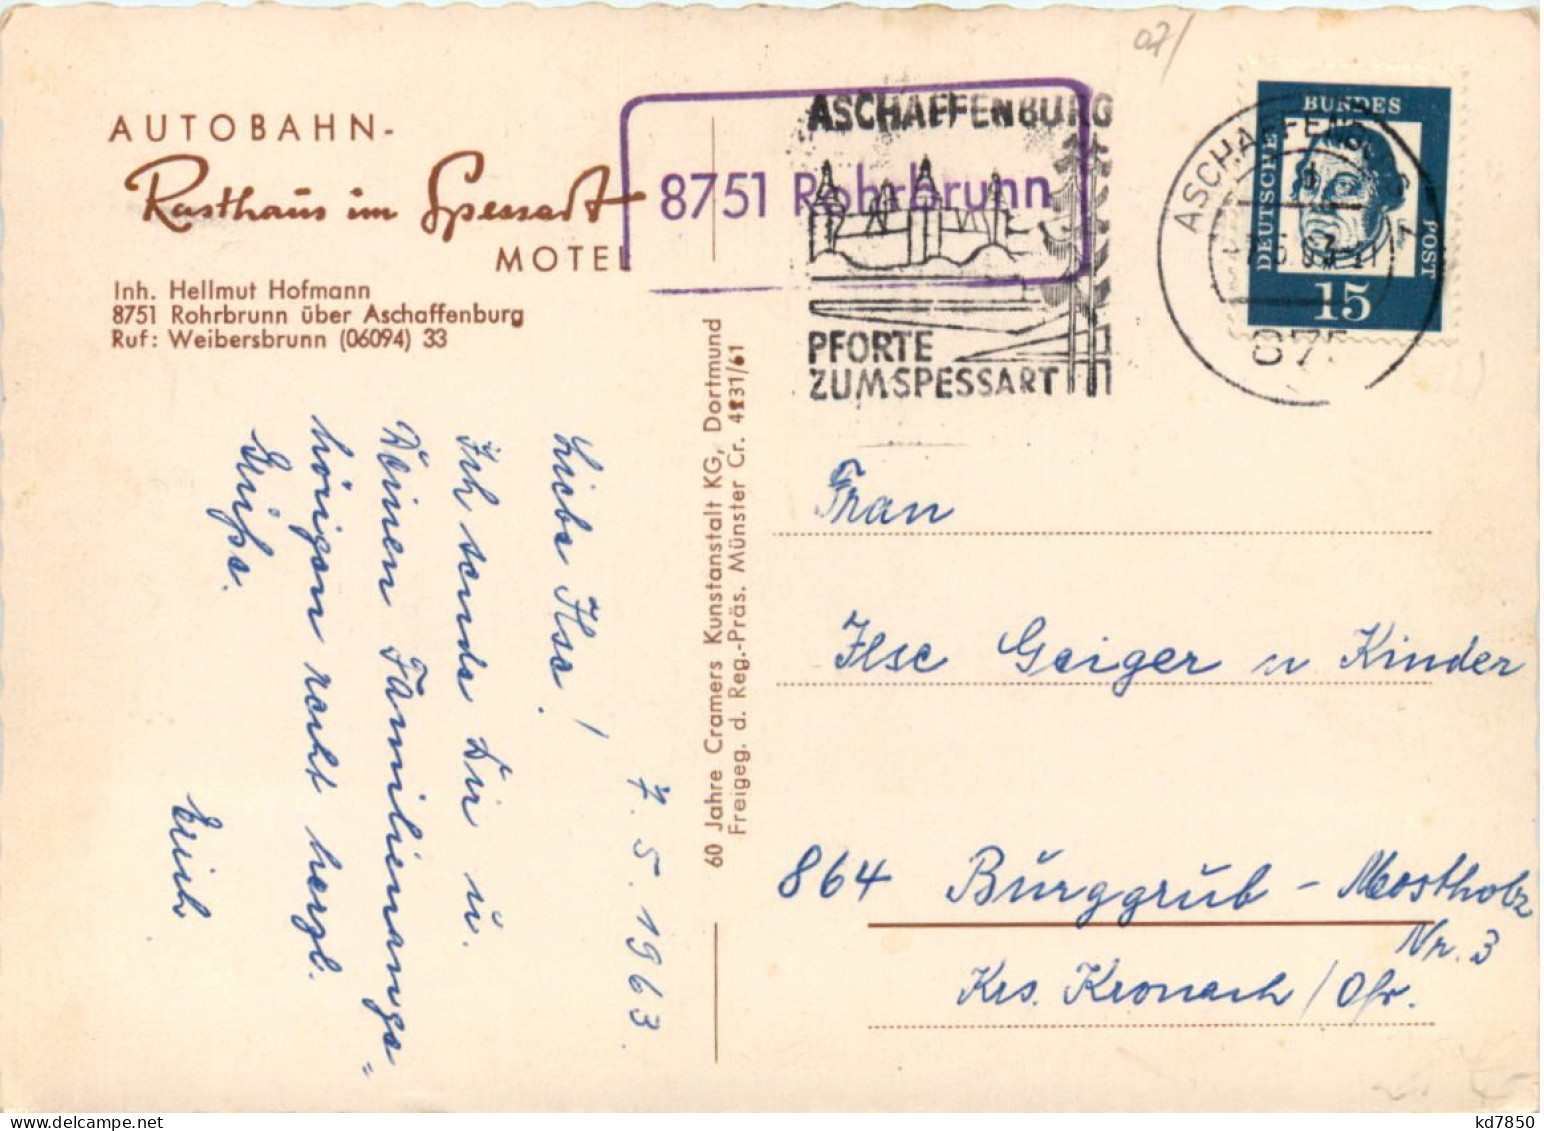 07/
AUTOBAHN-
Rasthaus im Spessart
MOTEL
Inh. Hellmut Hofmann
8751 Rohrbrunn über Aschaffenburg
Ruf: Weibersbrunn (06094) 33
8751 Rohrbrunn
ASCHAFFENBURG
PFORTE
ZUM SPESSART
ASCHAFFENBURG
-7.5.63
875
DEUTSCHE
BUNDES
POST
15
7. 5. 1963.
Liebe Ilse!
Ich sende Dir u.
Deinen Familienange=
hörigen recht herzl.
Grüße.
Erich
60 Jahre Cramers Kunstanstalt KG, Dortmund
Freigeg. d. Reg.-Präs. Münster Cr. 4131/61
Frau
Ilse Geiger u Kinder
864 Burggrub - Mostholz
Nr. 3
Krs. Kronach / Ofr.
kd7850